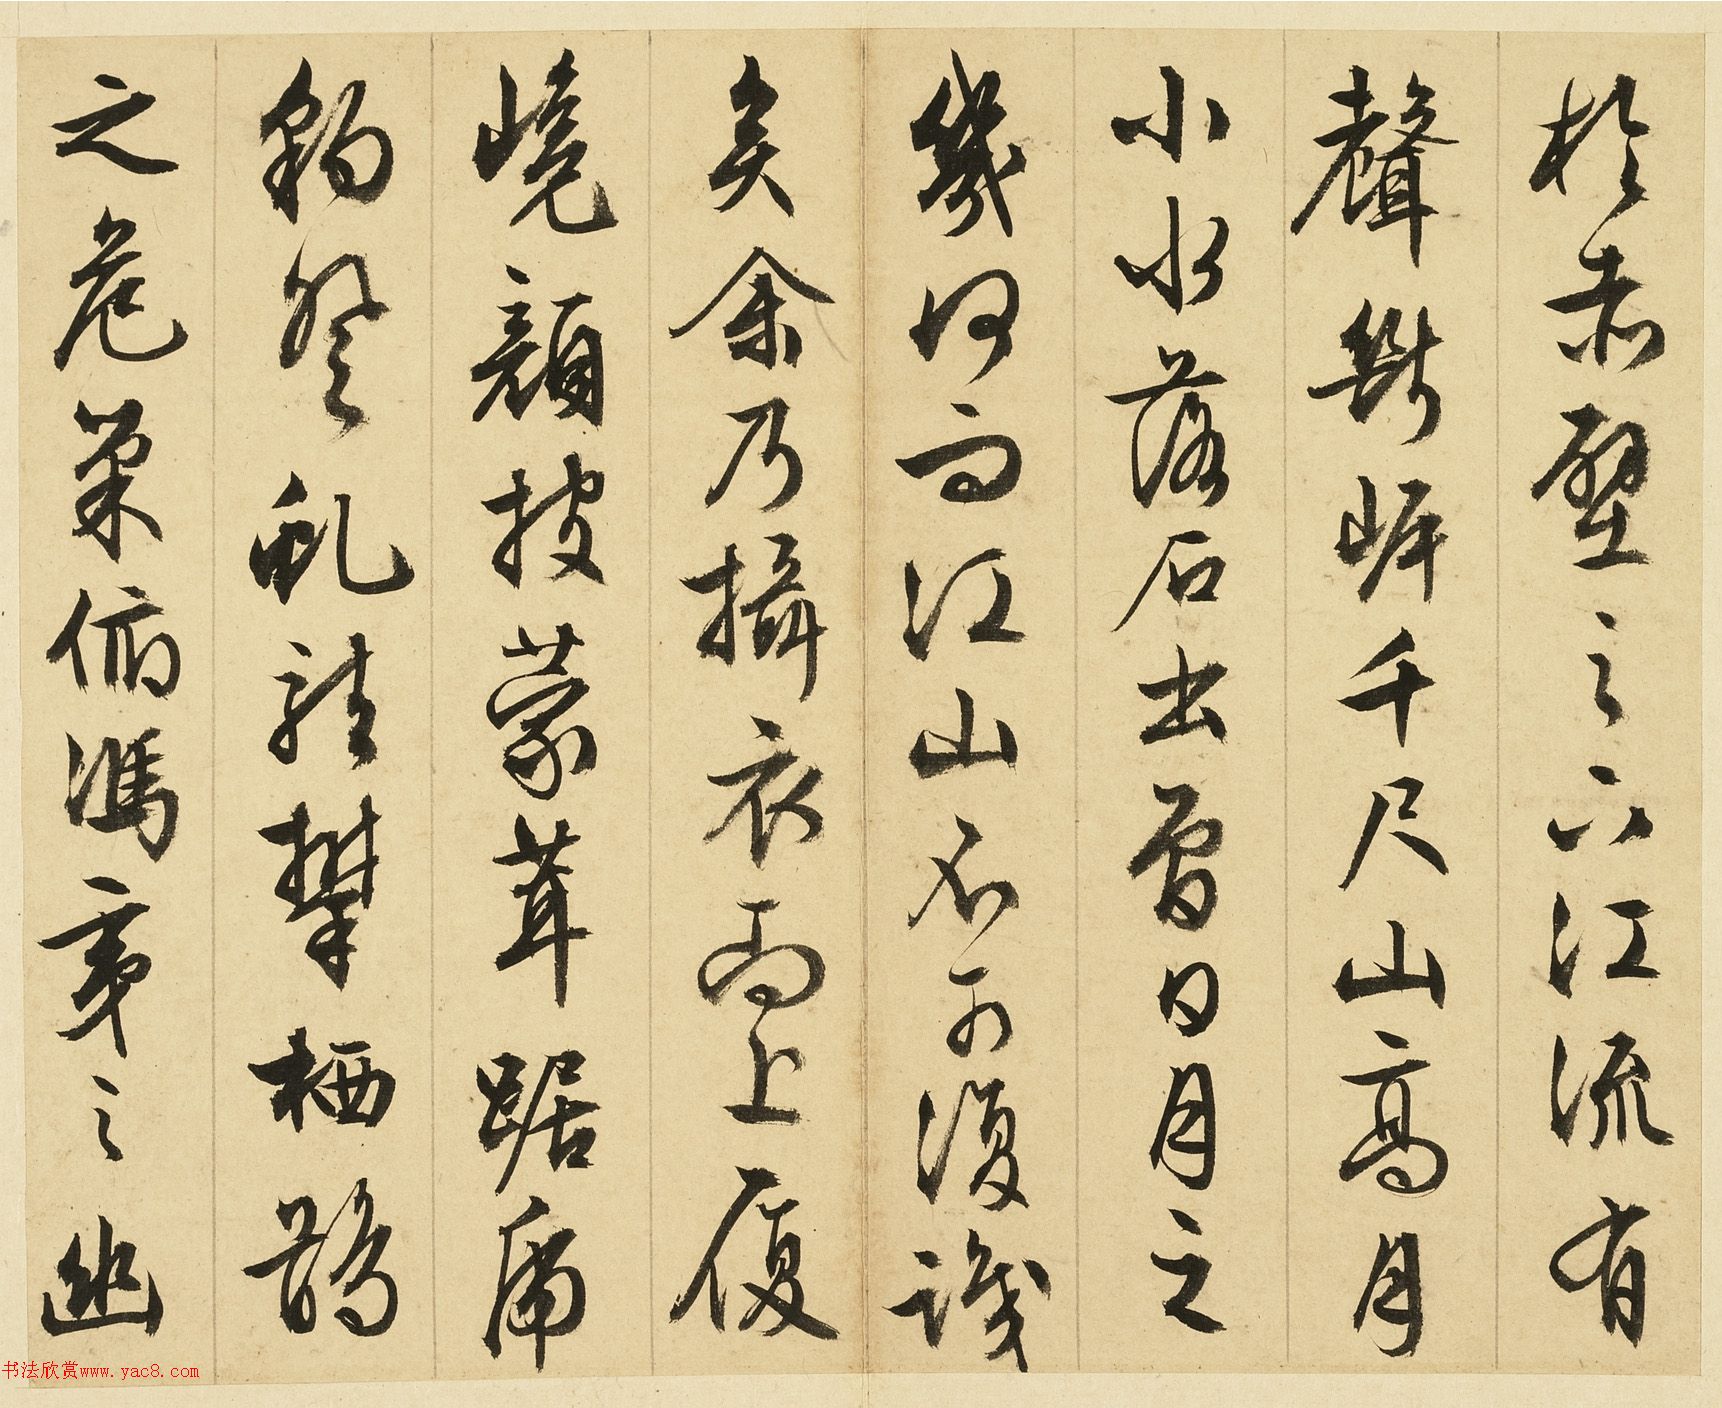 於赤壁之下江流有
聲斷岸千尺山高月
小水落石出曾日月之
幾何而江山不可復識
矣余乃攝衣而上履
巉巖披蒙茸踞虎
豹登虬龍攀栖鶻
之危巢俯馮夷之幽
书法欣赏www.yac8.com